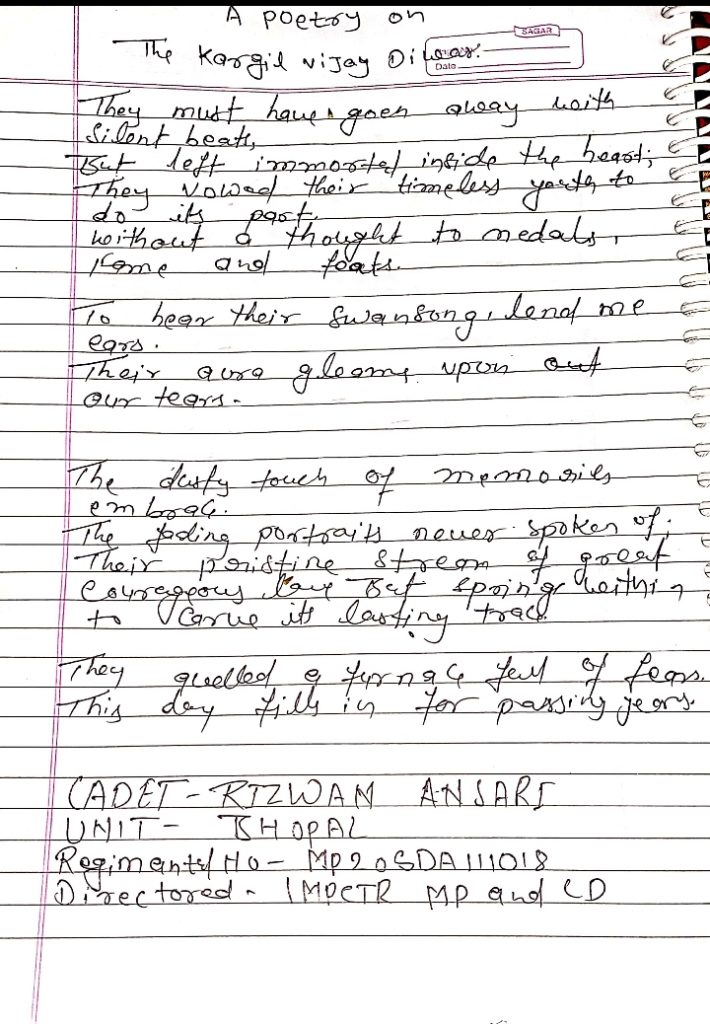 A poetry on
SAGAR
The Kargil vijay Diwas.
Date
They must have goen away with
Silent beats,
But left immortal inside the heart;
They vowed their timeless youth to
do its part.
without a thought to medals,
Fame and feats.
To hear their swansong, lend me
ears.
Their aura gleams upon out
our tears.
The dusty touch of memories
embrace.
The fading portraits never spoken of;
Their pristine stream of great
Courageous love But springs within
to carve its lasting trace
They quelled a furnace full of fears.
This day fills in for passing years.
CADET - RIZWAN ANSARI
UNIT - BHOPAL
Regimental No - MP20SDA111018
Directored - 1MPCTR MP and CD